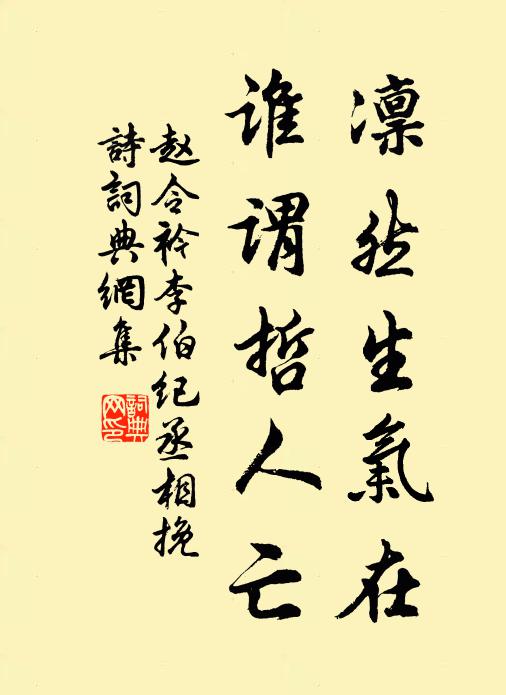 凛然生氣在
谁謂哲人亡
赵令衿李伯纪丞相挽
詩詞典網集
詞典
网印